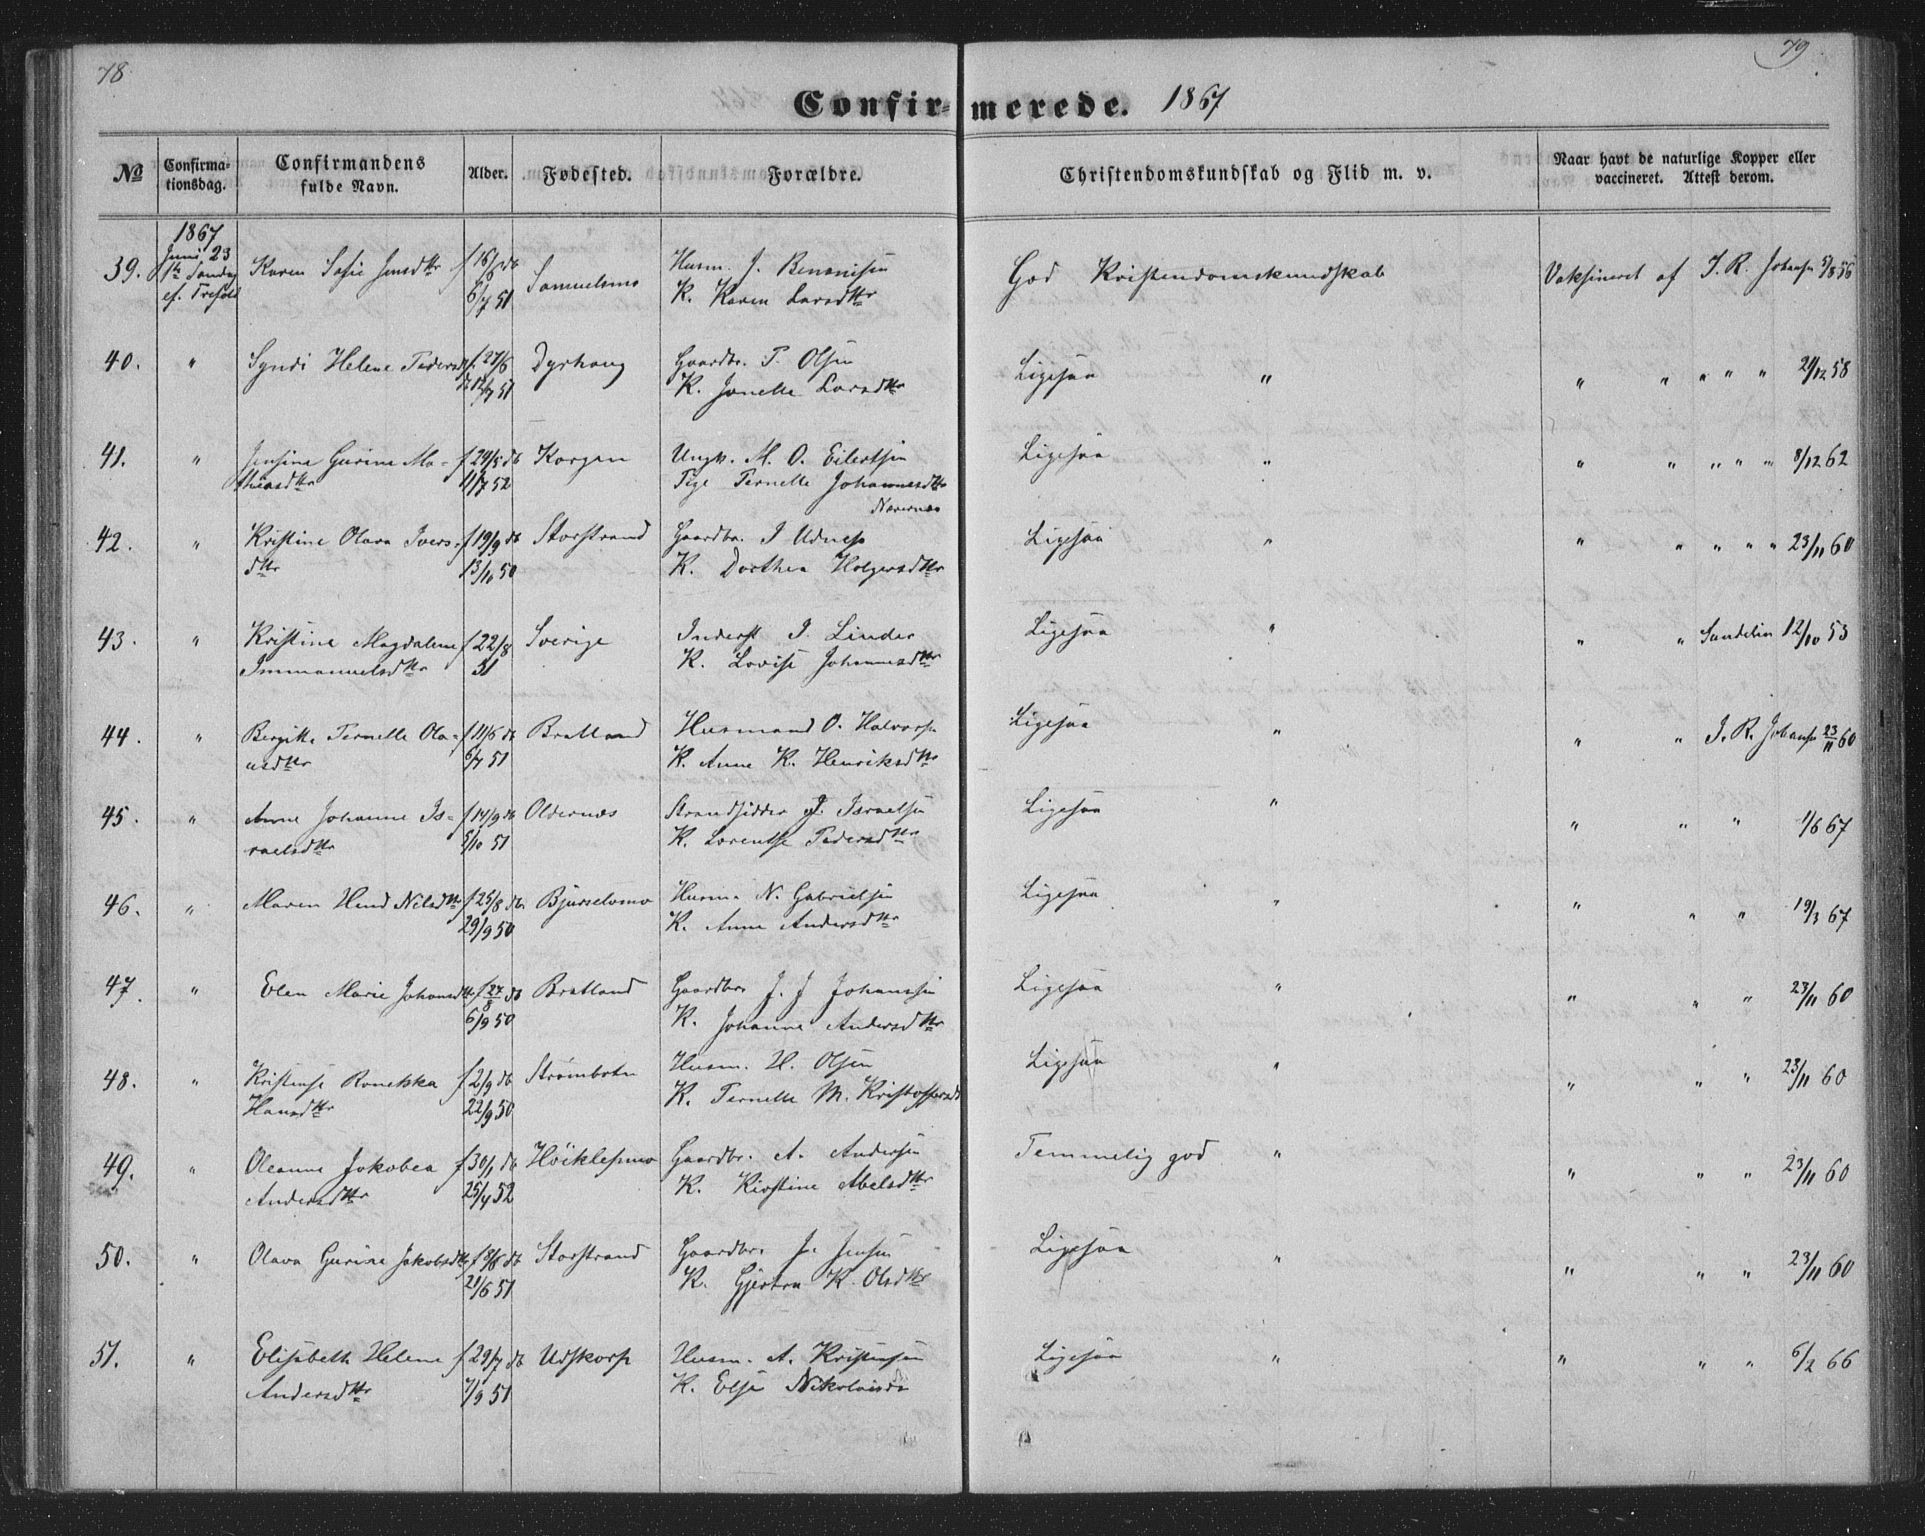 78
79
Confirmerede. 1867
No
Confirmationsdag.
Confirmandens fulde Navn.
Alder.
Fødested.
Forældre.
Christendomskundskab og Flid m. v.
Naar havt de naturlige Kopper eller vaccineret. Attest derom.
1867
Juni 23
39. Karen Sofie Jensdtr f 16/6 db Samuelsmo Husm. J. Benonisen God Kristendomskundskab Vaksineret af J. R. Johansen
6/7 51 K. Karen Larsdtr
40. " Syndi Helene Pedersdtr f. 27/6 Dyrhaug Gaardbr. P. Olsen Ligesaa " " " " " " 21/12 58
12/7 51 K. Janette Larsdtr
41. " Jensine Gurine Ma- f 29/5 db Korgen Ungk. M. O. Eilertsen Ligesaa " " " " " " 8/12 62
thiasdtr 11/7 52 Pige Pernelle Johannesdtr
42. " Kristine Olava Ivers- f 19/9 db Storstrand Gaardbr. I Udnes Ligesaa " " " " " " 23/11 60
dtr 13/10 50 K. Dorthea Holgersdtr
43. " Kristine Magdalene f 22/8 Sverige Inderst I. Linder Ligesaa " " " Sandelin 12/10 53
Immanuelsdtr 51 K. Lovise Johannesdtr
44. " Bergitte Pernelle Ola- f 11/6 db Bratland Husmand O. Halvorsen Ligesaa " " " J. R. Johansen 23/11 60
usdtr 6/7 51 K. Anne K. Henriksdtr
45. " Anne Johanne Is- f 14/9 db Oldernæs Strandsidder J. Israelsen Ligesaa " " " " 1/6 67
raelsdtr 5/10 51 K. Lorentse Pedersdtr
46. " Maren Hind Nilsdtr f 25/8 db Bjurselvmo Husm. N. Gabrielsen Ligesaa " " " " 19/3 67
29/9 50 K. Anne Andersdtr
47. " Elen Marie Johansdtr f 27/8 db Bratland Gaardbr. J. J Johansen Ligesaa " " " " 23/11 60
6/9 50 K. Johanne Andersdtr
48. " Kristense f 2/9 db Strømbotn Husm. H. Olsen Ligesaa " " " " 23/11 60
Hansdtr 22/9 50 K. Pernelle M. Kristoffersdtr
49. " Oleanna Jakobea f 30/1 db Høiklepmo Gaardbr. A. Andersen Temmelig god " " " " 23/11 60
Andersdtr 25/4 52 K. Kirstine Abelsdtr
50. " Olava Gurine Jakobsdtr f 8/6 db Storstrand Gaardbr. J. Jensen Ligesaa " " " " 23/11 60
21/6 51 K. Gjertru K. Olsdtr
51. " Elisabeth Helene f 29/7 db Udskorp Husm. A. Kristensen Ligesaa " " " " 6/2 66
Andersdtr 7/9 51 K. Else Nikolaisd